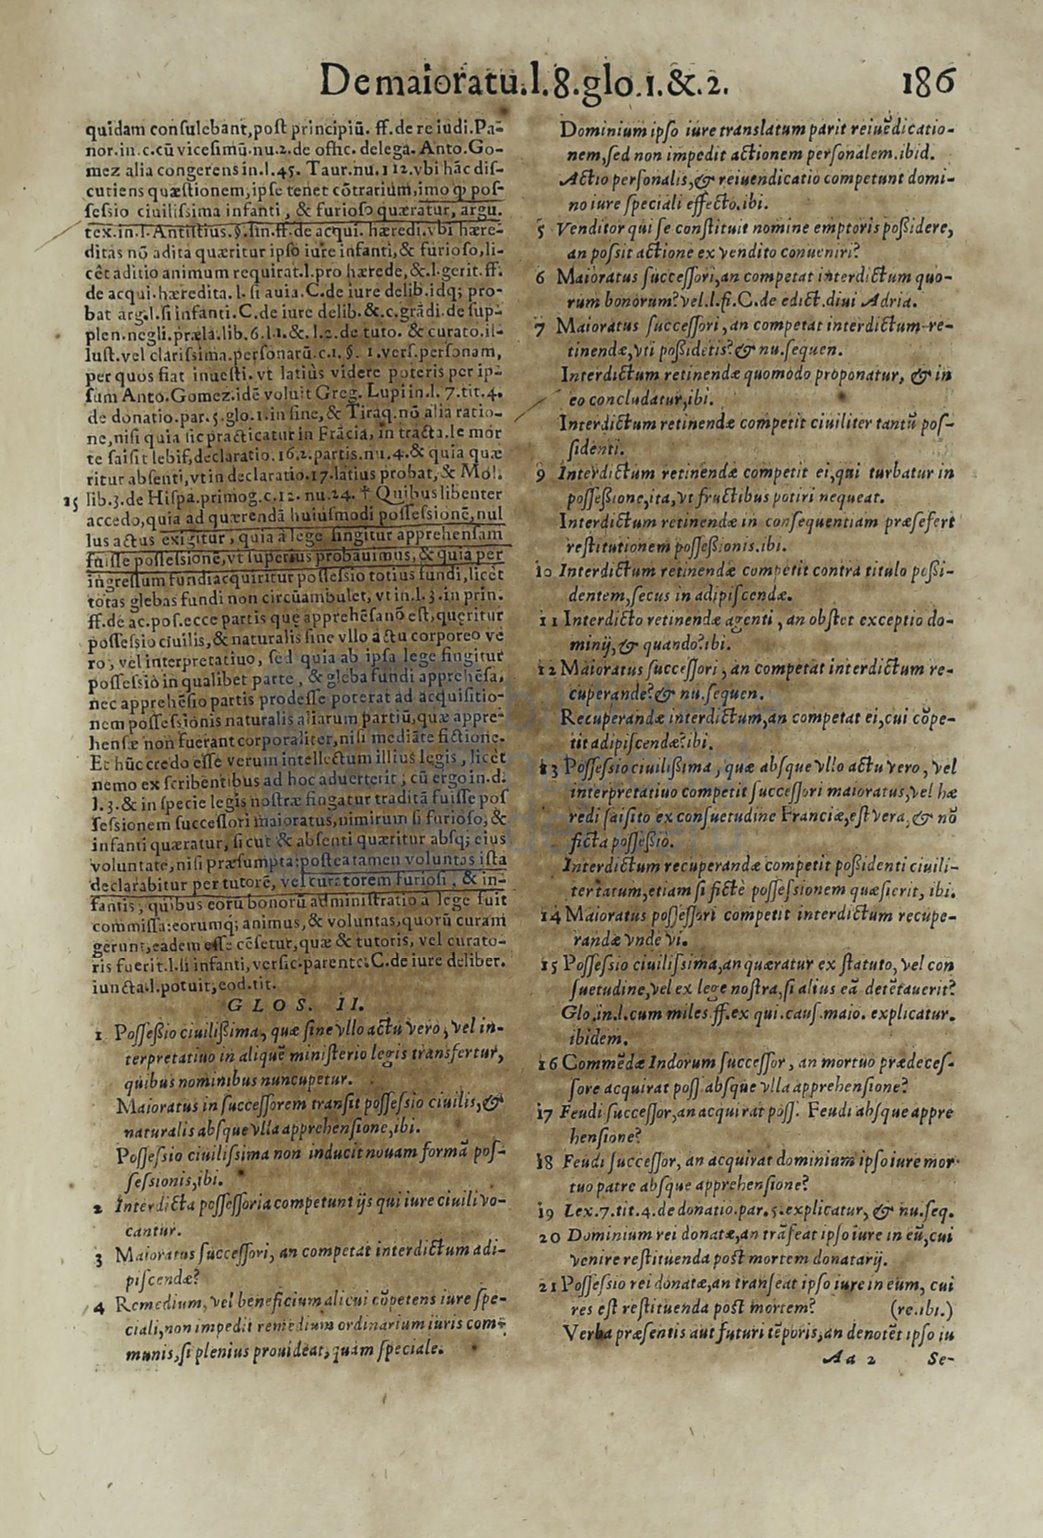 De maioratu.l.8.glo.1.&.2. 186
quidam consulebant,post principiū. ff.de re iudi.Pa-
nor.in.c.cū vicesimū.nu.2.de offic.delega.Anto.Go-
mez alia congerens in.l.45. Taur.nu.112.vbi hāc dis-
cutiens quæstionem,ipse tenet cōtrarium,imo ꝙ pos-
sessio ciuilissima infanti, & furioso quæratur, argu.
tex.in.l.Antistius.§.fin.ff.de acqui. hæredi.vbi hære-
ditas nō adita quæritur ipso iure infanti,& furioso,li-
cēt aditio animum requirat.l.pro hærede,&.l.gerit.ff.
de acqui.hæredita. l. si auia.C.de iure delib.idq; pro-
bat arg.l.si infanti.C.de iure delib.&.c.grādi.de sup-
plen.negli.præla.lib.6.l.1.&.l.2.de tuto. & curato.il-
lust.vel clarissima.personarū.c.1.§. 1.vers.personam,
per quos fiat inuesti.vt latiùs videre poteris per ip-
sum Anto.Gomez.idē voluit Greg. Lupi in.l. 7.tit.4.
de donatio.par.5.glo.1.in fine,& Tiraq.nō alia ratio-
ne,nisi quia sic practicatur in Frācia, in tracta.le mor
te saisit lebif,declaratio.16.2.partis.nu.4.& quia quæ
ritur absenti,vt in declaratio.17.latius probat,& Mol.
15 lib.3.de Hispa.primog.c.12.nu.24. † Quibus libenter
accedo,quia ad quærendā huiusmodi possessionē,nul
lus actus exigitur, quia à lege fingitur apprehensam
fuisse possessionē,vt superius probauimus,& quia per
ingressum fundi acquiritur possessio totius fundi,licèt
totas glebas fundi non circūambulet, vt in.l.3.in prin.
ff.de ac.pos.ecce partis quę apprehēsa nō est,quęritur
possessio ciuilis,& naturalis sine vllo actu corporeo ve
ro, vel interpretatiuo, sed quia ab ipsa lege fingitur
possessio in qualibet parte, & gleba fundi apprehēsa,
nec apprehēsio partis prodesse poterat ad acquisitio-
nem possessionis naturalis aliarum partiū,quæ appre-
hensæ non fuerant corporaliter,nisi mediāte fictione.
Et hūc credo esse verum intellectum illius legis, licèt
nemo ex scribentibus ad hoc aduerterit; cū ergo in.d.
l.3.& in specie legis nostræ fingatur tradita fuisse pos
sessionem successori maioratus,nimirum si furioso,&
infanti quæratur, sicut & absenti quæritur absq; eius
voluntate,nisi præsumpta:postea tamen voluntas ista
declarabitur per tutorē, vel curatorem furiosi, & in-
fantis, quibus eorū bonorū administratio à lege fuit
commissa:eorumq; animus,& voluntas,quorū curam
gerunt,eadem esse cēsetur,quæ & tutoris, vel curato-
ris fuerit.l.si infanti,versic.parente.C.de iure deliber.
iuncta.l.potuit,eod.tit.
GLOS. II.
1 Possessio ciuilissima, quæ sine vllo actu vero, vel in-
terpretatiuo in aliquē ministerio legis transfertur,
quibus nominibus nuncupetur.
Maioratus in successorem transit possessio ciuilis,&
naturalis absque vlla apprehensione,ibi.
Possessio ciuilissima non inducit nouam formā pos-
sessionis,ibi.
2 Interdicta possessoria competunt ijs qui iure ciuili vo-
cantur.
3 Maioratus successori, an competat interdictum adi-
piscendæ?
4 Remedium, vel beneficium alicui cōpetens iure spe-
ciali,non impedit remedium ordinarium iuris com-
munis,si plenius prouideat,quàm speciale.
Dominium ipso iure translatum parit reiuēdicatio-
nem,sed non impedit actionem personalem.ibid.
Actio personalis,& reiuendicatio competunt domi-
no iure speciali effecto.ibi.
5 Venditor qui se constituit nomine emptoris possidere,
an possit actione ex vendito conueniri?
6 Maioratus successori,an competat interdictum quo-
rum bonorum?vel.l.fi.C.de edict.diui Adria.
7 Maioratus successori, an competat interdictum re-
tinendæ,vti possidetis?& nu.sequen.
Interdictum retinendæ quomodo proponatur, & in
eo concludatur,ibi.
Interdictum retinendæ competit ciuiliter tantū pos-
sidenti.
9 Interdictum retinendæ competit ei,qui turbatur in
possessione,ita,vt fructibus potiri nequeat.
Interdictum retinendæ in consequentiam præsefert
restitutionem possessionis.ibi.
10 Interdictum retinendæ competit contra titulo possi-
dentem,secus in adipiscendæ.
11 Interdicto retinendæ agenti, an obstet exceptio do-
minij,& quando?ibi.
12 Maioratus successori, an competat interdictum re-
cuperandę?& nu.sequen.
Recuperandæ interdictum,an competat ei,cui cōpe-
tit adipiscendæ?ibi.
13 Possessio ciuilissima, quæ absque vllo actu vero, vel
interpretatiuo competit successori maioratus,vel hæ
redi saisito ex consuetudine Franciæ,est vera,& nō
ficta possessio.
Interdictum recuperandæ competit possidenti ciuili-
ter tatum,etiam si fictè possessionem quæsierit, ibi.
14 Maioratus possessori competit interdictum recupe-
randæ vnde vi.
15 Possessio ciuilissima,an quæratur ex statuto,vel con
suetudine,vel ex lege nostra,si alius eā detētauerit?
Glo.in.l.cum miles ff.ex qui.caus.maio. explicatur.
ibidem.
16 Commēdæ Indorum successor, an mortuo prædeces-
sore acquirat poss absque vlla apprehensione?
17 Feudi successor,an acquirat poss. Feudi absque appre
hensione?
18 Feudi successor, an acquirat dominium ipso iure mor-
tuo patre absque apprehensione?
19 Lex.7.tit.4.de donatio.par.5.explicatur,& nu.seq.
20 Dominium rei donatæ,an trāseat ipso iure in eū,cui
venire restituenda post mortem donatarij.
21 Possessio rei donatæ,an transeat ipso iure in eum, cui
res est restituenda post mortem? (re.ibi.)
Verba præsentis aut futuri tēporis,an denotēt ipso iu
Aa 2 Se-